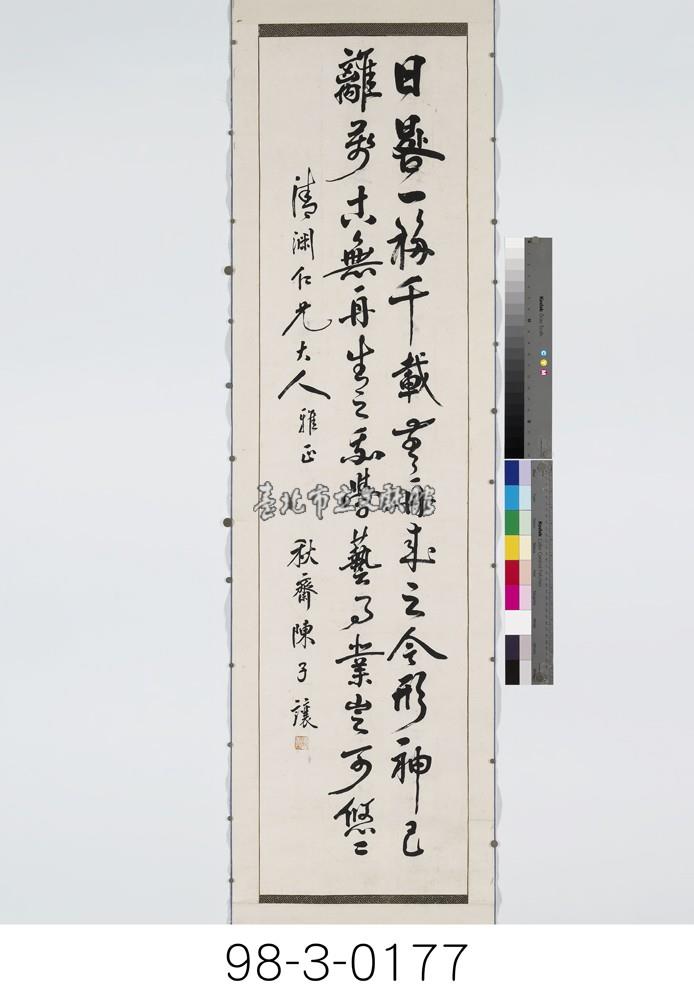 日晷一移千載無再來之今形神已
離萬古無再生之我學藝事業豈可悠々
清渕仁兄大人雅正 秋齋陳子讓
臺北市立文獻館
Kodak
Kodak
C
Y
M
98-3-0177